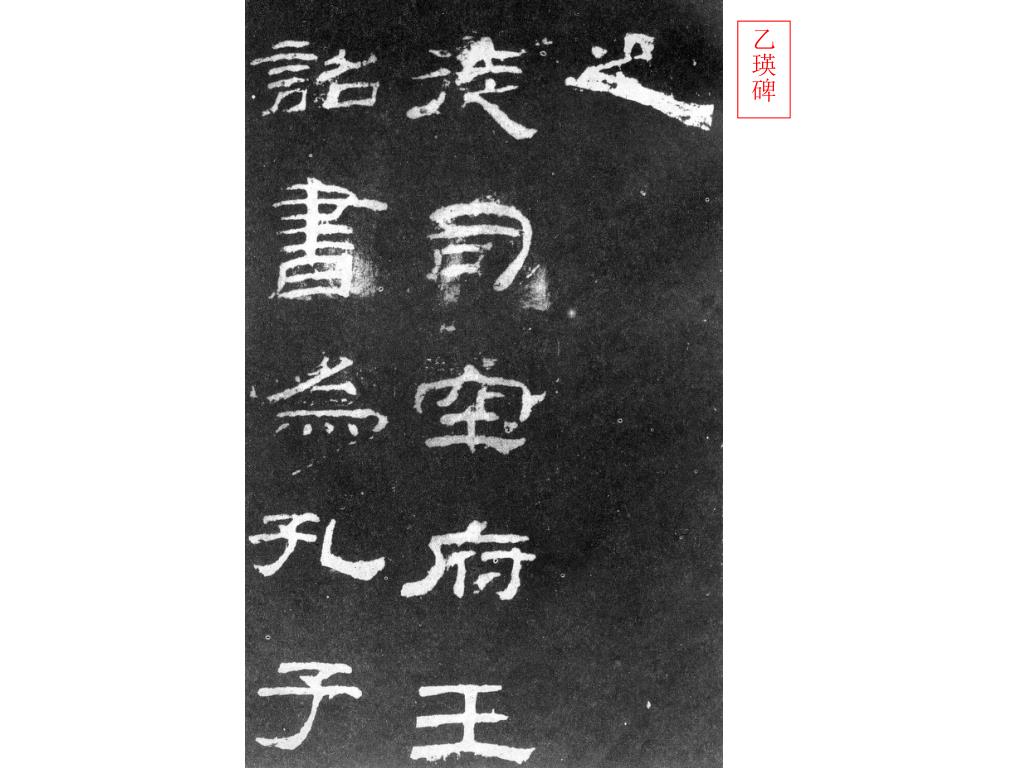 乙瑛碑
之
徒司空府壬
詔書為孔子